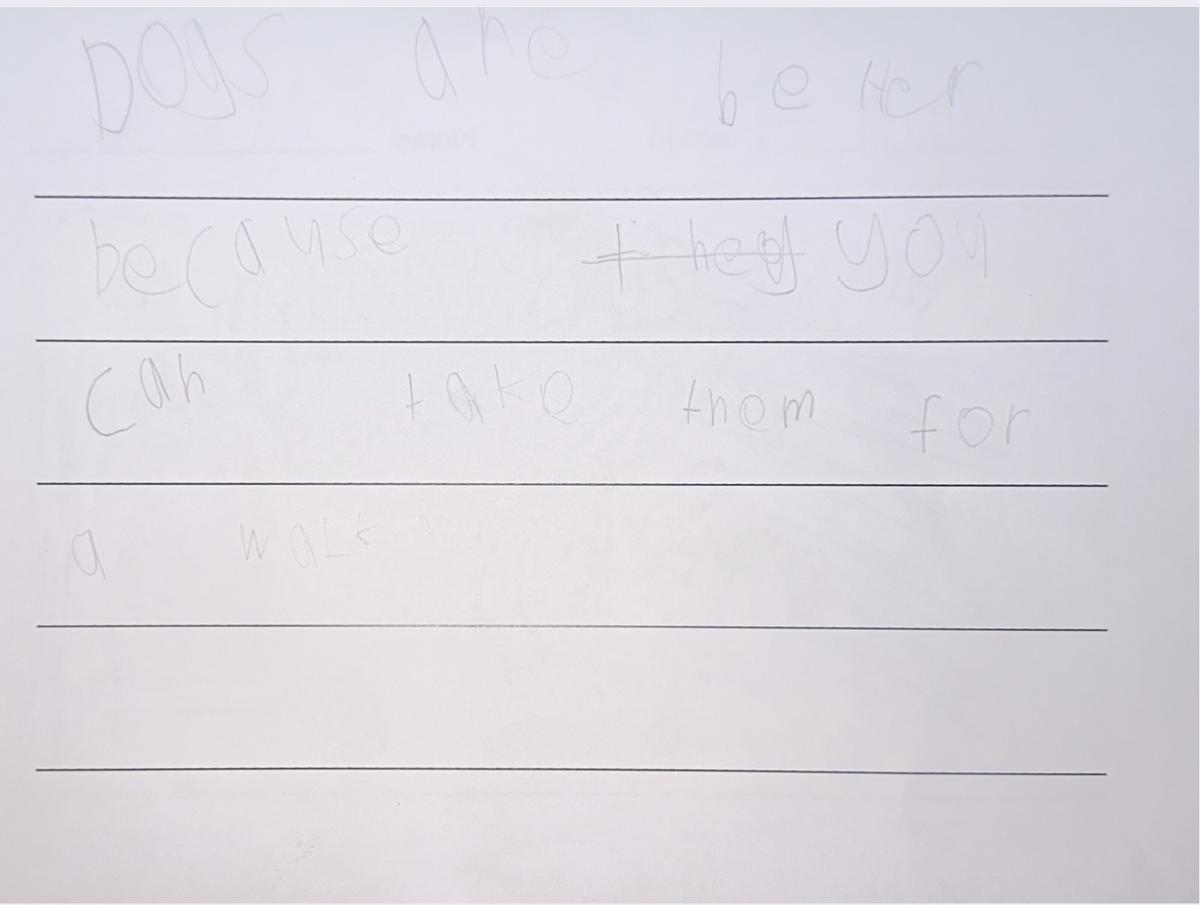 Dogs are better
because they you
can take them for
a walk.